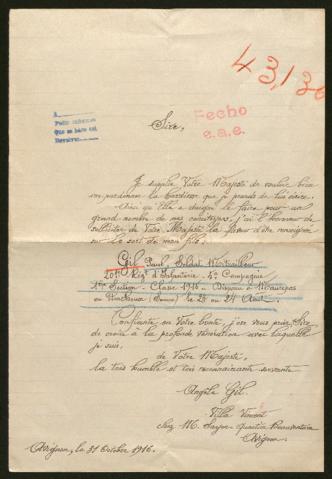 43,130
Fecho
e.a.e.
Sire,
Je supplie Votre Majesté de vouloir bien
me pardonner la hardiesse que je prends de lui écrire.
Ainsi qu'Elle a daigné le faire pour un
grand nombre de mes concitoyens, j'ai l'honneur de
solliciter de Votre Majesté la faveur d'être renseignée
sur le sort de mon fils.
Gil Paul, Soldat Mitrailleur
201e Régt d'Infanterie 4e Compagnie
1ère Section - Classe 1915 - Disparu à Maurepas
ou (Somme) le 23 ou 24 Août.
Confiante en Votre bonté, j'ose vous prier, Sire,
de croire à la profonde vénération avec laquelle
je suis,
de Votre Majesté,
la très humble et très reconnaissante servante.
Angèle Gil.
Villa Vincent
Avignon.
Avignon, le 31 Octobre 1916.